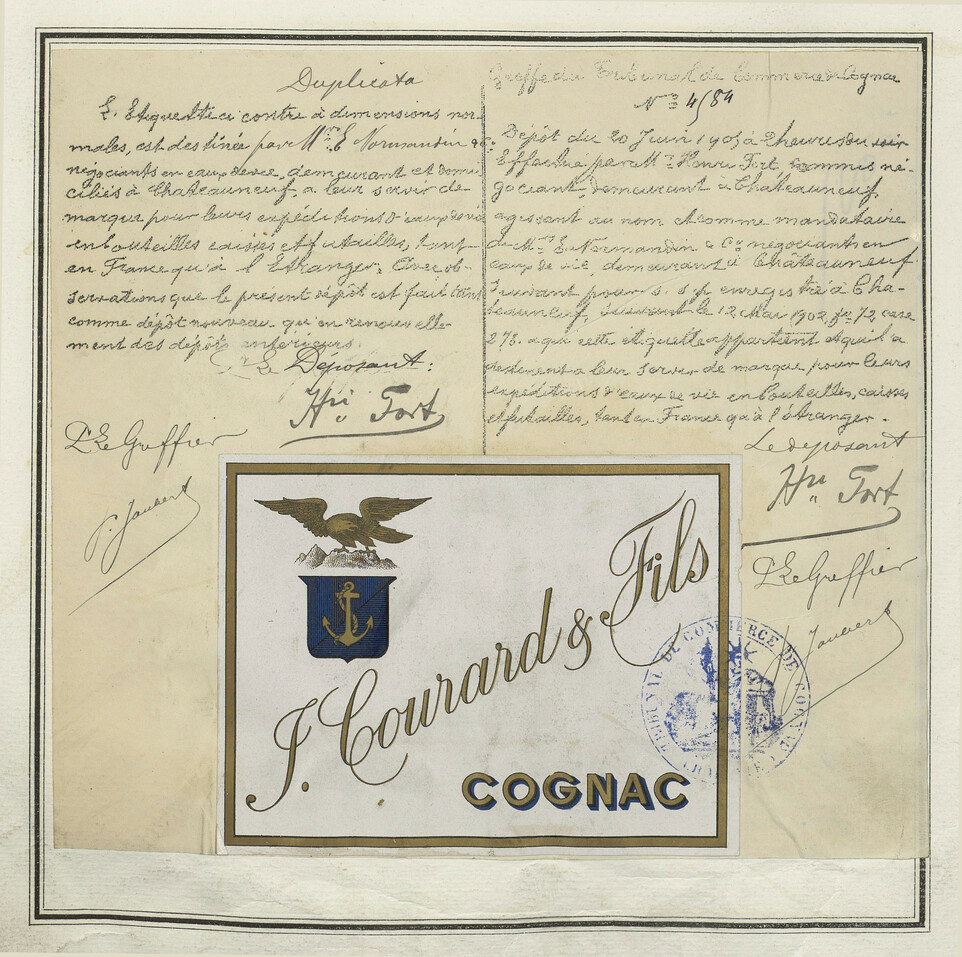 Duplicata
L'Etiquette ci contre à dimensions nor-
males, est destinée par Mr. E. Normandin & Cie
négociants en eaux de vie, demeurant et domi-
ciliés à Chateauneuf, a leur servir de
marque pour leurs expéditions d'eaux de vie
en bouteilles caisses et futailles, tant
en France qu'à l'Etranger. Avec ob-
servations que le présent dépôt est fait tant
comme dépôt nouveau qu'en renouvelle-
ment des dépôts antérieurs.
Le Déposant:
Hri Fort
Le Greffier
Jaubert
Greffe du Tribunal de Commerce de Cognac
No 4/84
Dépôt du 20 Juin 1905 à heures du soir
Effectué par Mr. Henri Fort, commis né-
gociant, demeurant à Chateauneuf,
agissant au nom et comme mandataire
de Mr. E. Normandin & Cie négociants en
eaux de vie, demeurant à Châteauneuf.
Suivant pour s. s. p enregistré à Cha-
teauneuf, suivant le 12 Mai 1902, fo 72, case
275. a qui cette etiquette appartient et qui l'a
destinent a leur servir de marque pour leurs
expéditions d'eaux de vie en bouteilles, caisses
et futailles, tant en France qu'à l'étranger.
Le deposant
Hri Fort
Le Greffier
Jaubert
J. Courard & Fils
COGNAC
TRIBUNAL DE COMMERCE DE COGNAC